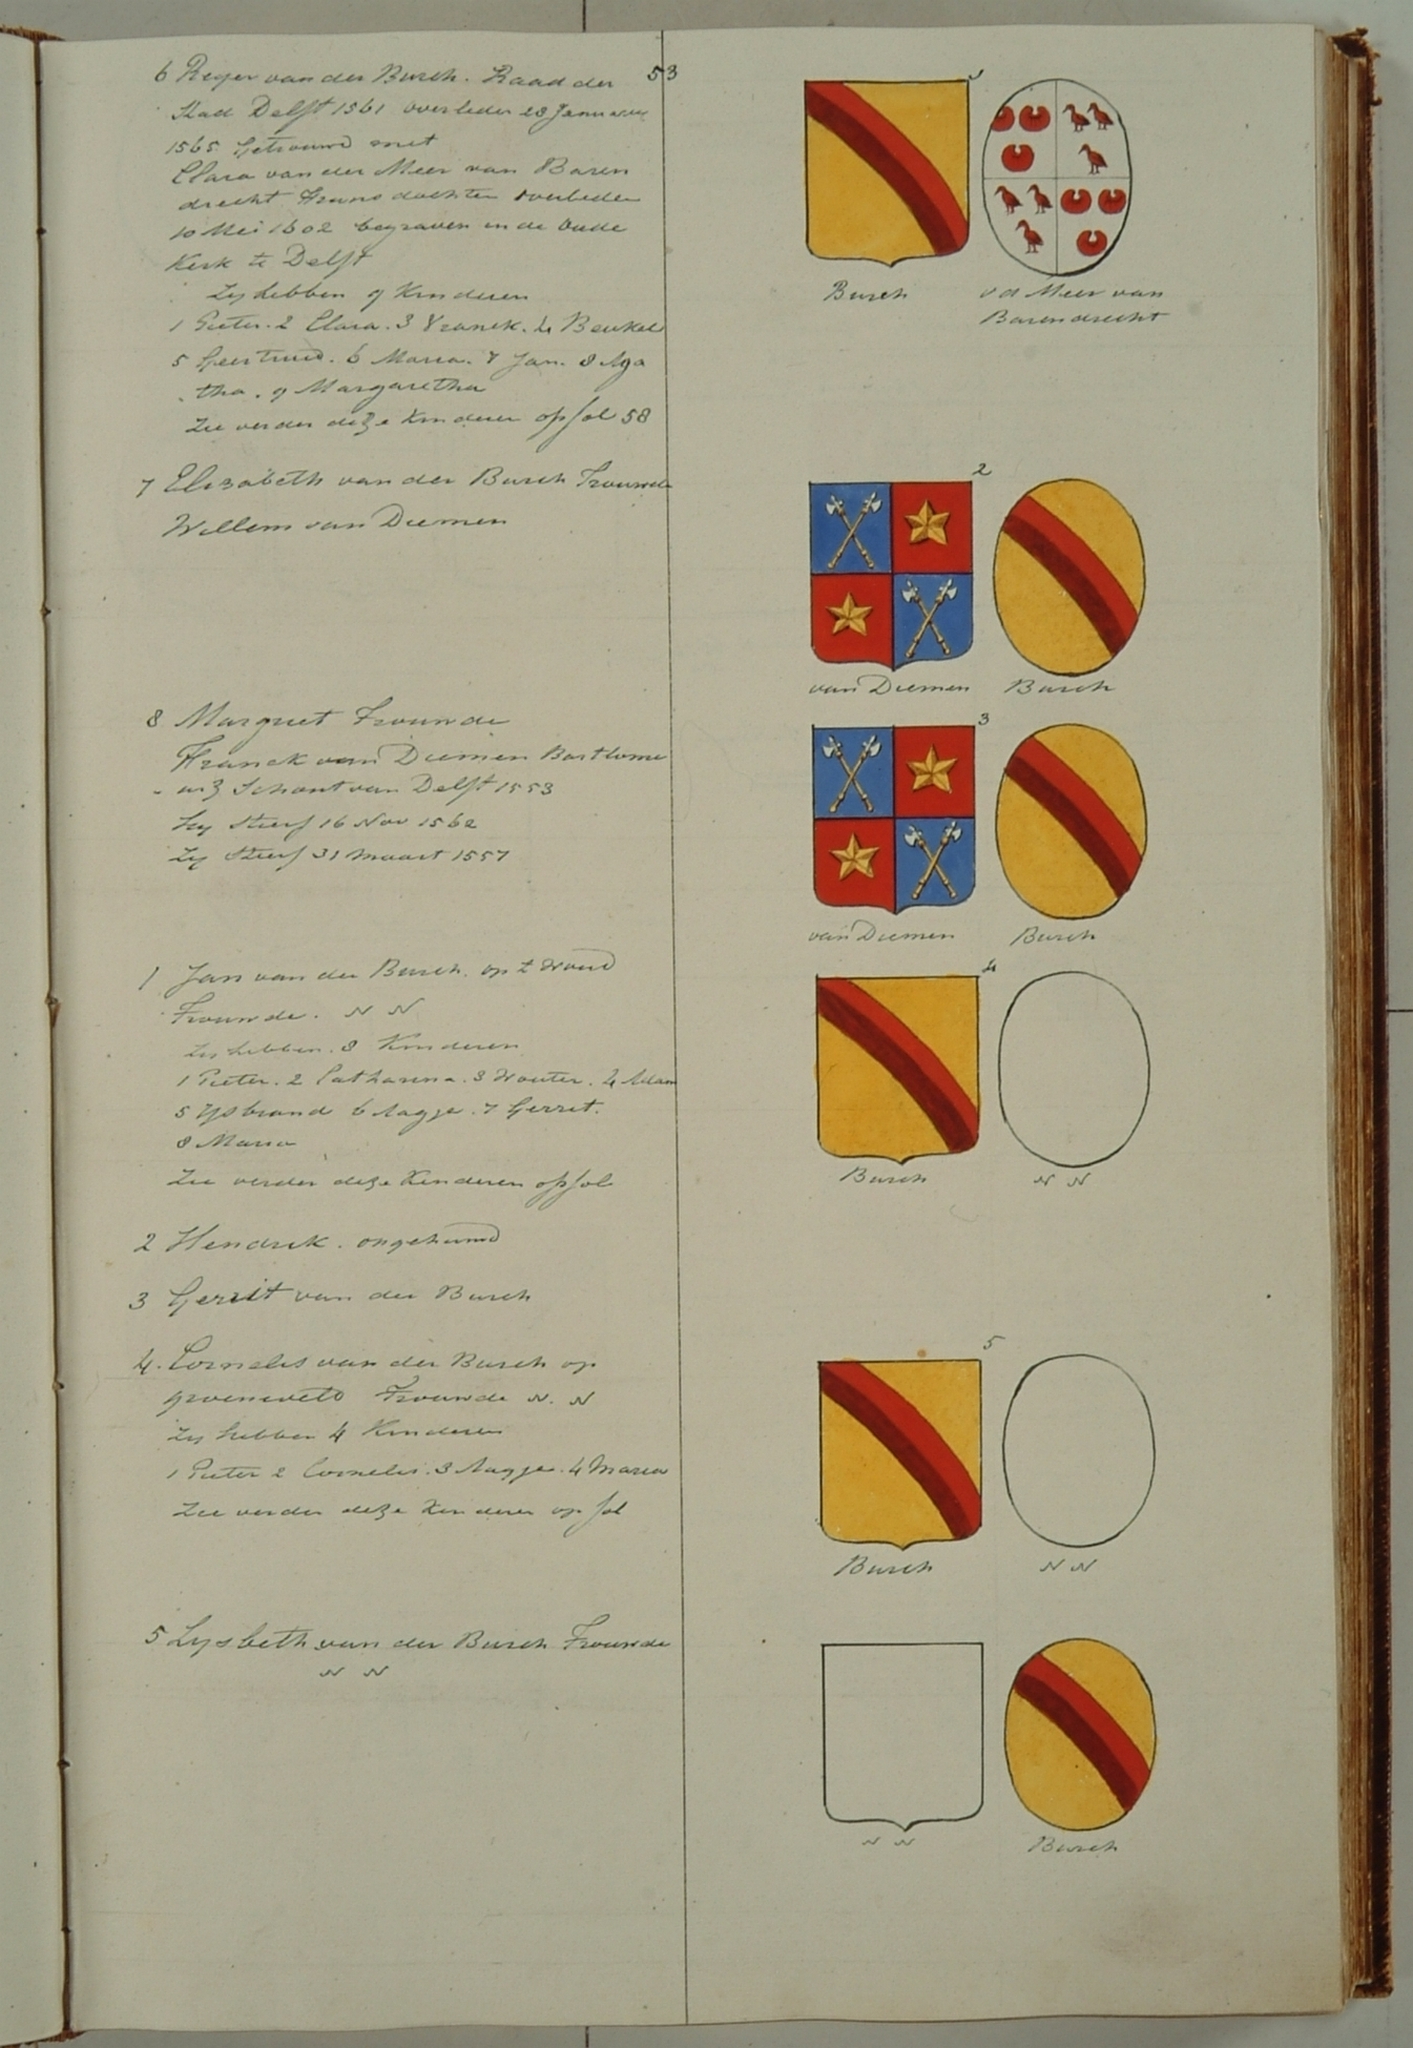 53
6 Reyer van der Burch. Raad der
Stad Delft 1561 overleden 23 Januarij
1565 getrouwd met
Clara van der Meer van Baren
drecht Frans dochter overleden
10 Mei 1602 begraven in de Oude
Kerk te Delft
Zy hebben 9 Kinderen
1 Pieter. 2 Clara. 3 Vranck. 4 Beukel
5 Geertruid. 6 Maria. 7 Jan. 8 Aga
tha. 9 Margaretha
Zie verder deze Kinderen op fol 58
7 Elizabeth van der Burch Trouwde
Willem van Diemen
8 Margriet Trouwde
Franck van Diemen Bartlome
usz Schout van Delft 1553
hy Stierf 16 Nov 1562
Zy Stierf 31 maart 1557
1 Jan van der Burch. op t Woud
Trouwde. N N
Zy hebben. 8 Kinderen
1 Pieter. 2 Catharina. 3 Wouter. 4 Adam
5 Ysbrand 6 Aagje. 7 Gerret.
8 Maria
Zie verder deze Kinderen op fol
2 Hendrik. ongehuwd
3 Gerrit van der Burch
4. Cornelis van der Burch op
groeneveld Trouwde N. N
Zy hebben 4 Kinderen
1 Pieter 2 Cornelis. 3 Aagje. 4 Maria
Zie verder deze Kinderen op fol
5 Lysbeth van der Burch Trouwde
N N
1
Burch
v d Meer van
Barendrecht
2
van Diemen Burch
3
van Diemen Burch
4
Burch N N
5
Burch N N
N N Burch